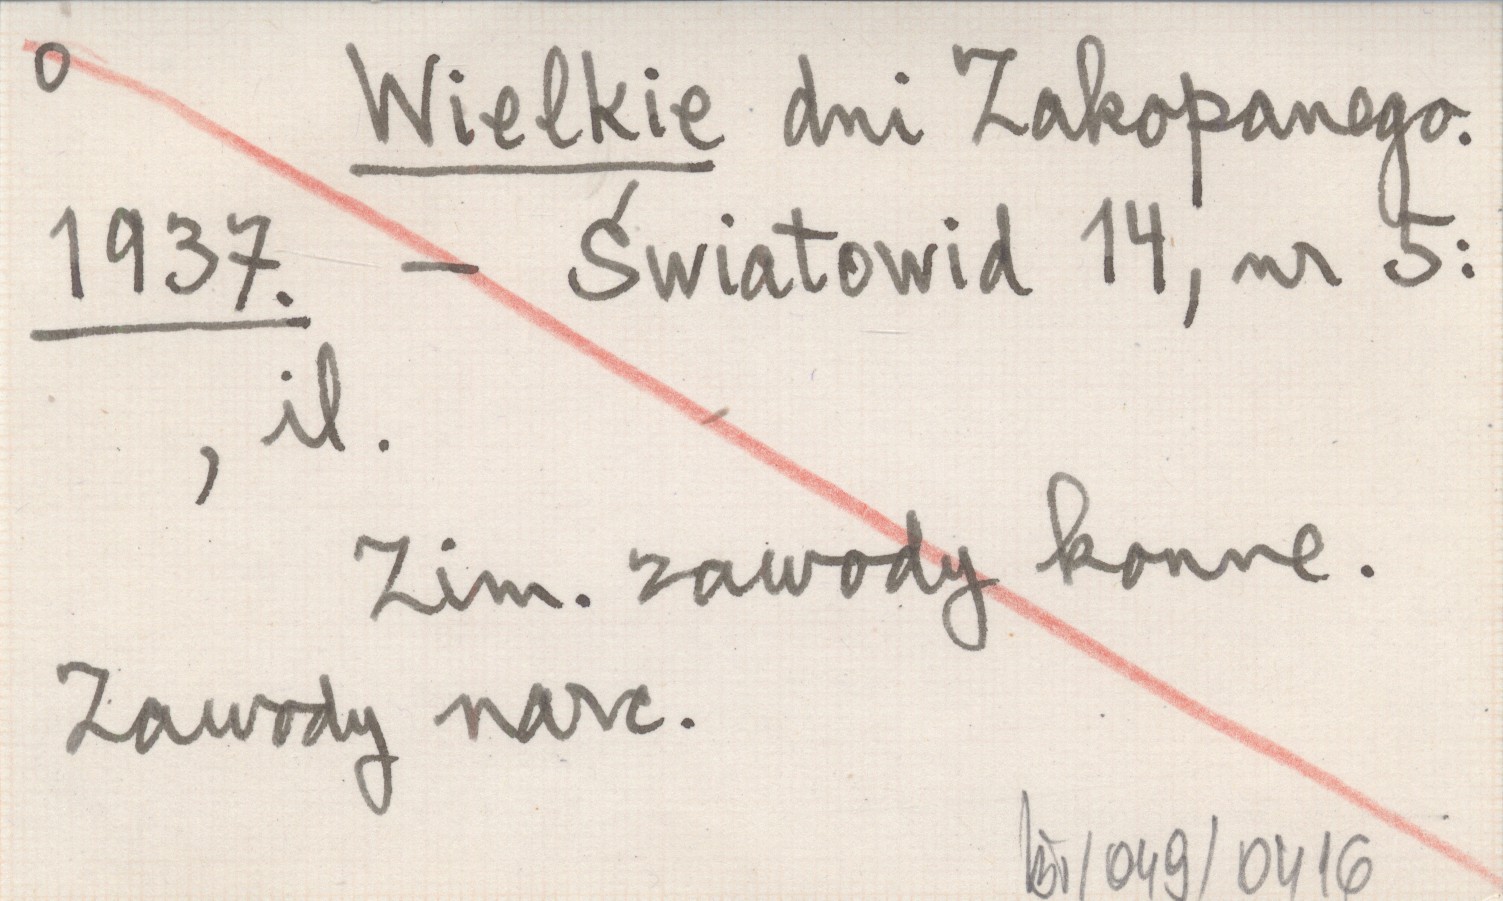 o Wielkie dni Zakopanego.
1937. — Światowid 14, nr 5:
, il.
Zim. zawody konne.
Zawody narc.
/049/0416